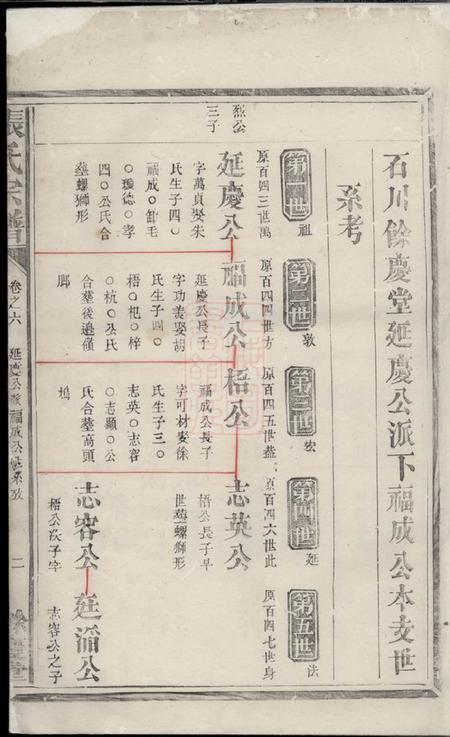 石川餘慶堂延慶公派下福成公本支世
系考
第一世 祖
原百四三世萬
第二世 敦
原百四四世方
第三世 宏
原百四五世
第四世 延
原百四六世此
第五世 法
原百四七世身
烈公
三子
延慶公
福成公
梧公
志英公
字萬貞娶朱
氏生子四○
福成○ 毛
○ 德○孝
四○公氏合
塟螺獅形
延慶公長子
字功 娶胡
氏生子四○
梧○杞○梓
○杭○公氏
合塟後邉嶺
福成公長子
字可材娶徐
氏生子三○
志英○志容
○志顯○公
氏合塟高頭
塢
梧公長子早
世塟螺獅形
志容公
廷 公
梧公次子字
志容公之子
張氏宗譜
卷之六
延慶公派福成公世系攷
二
餘慶堂